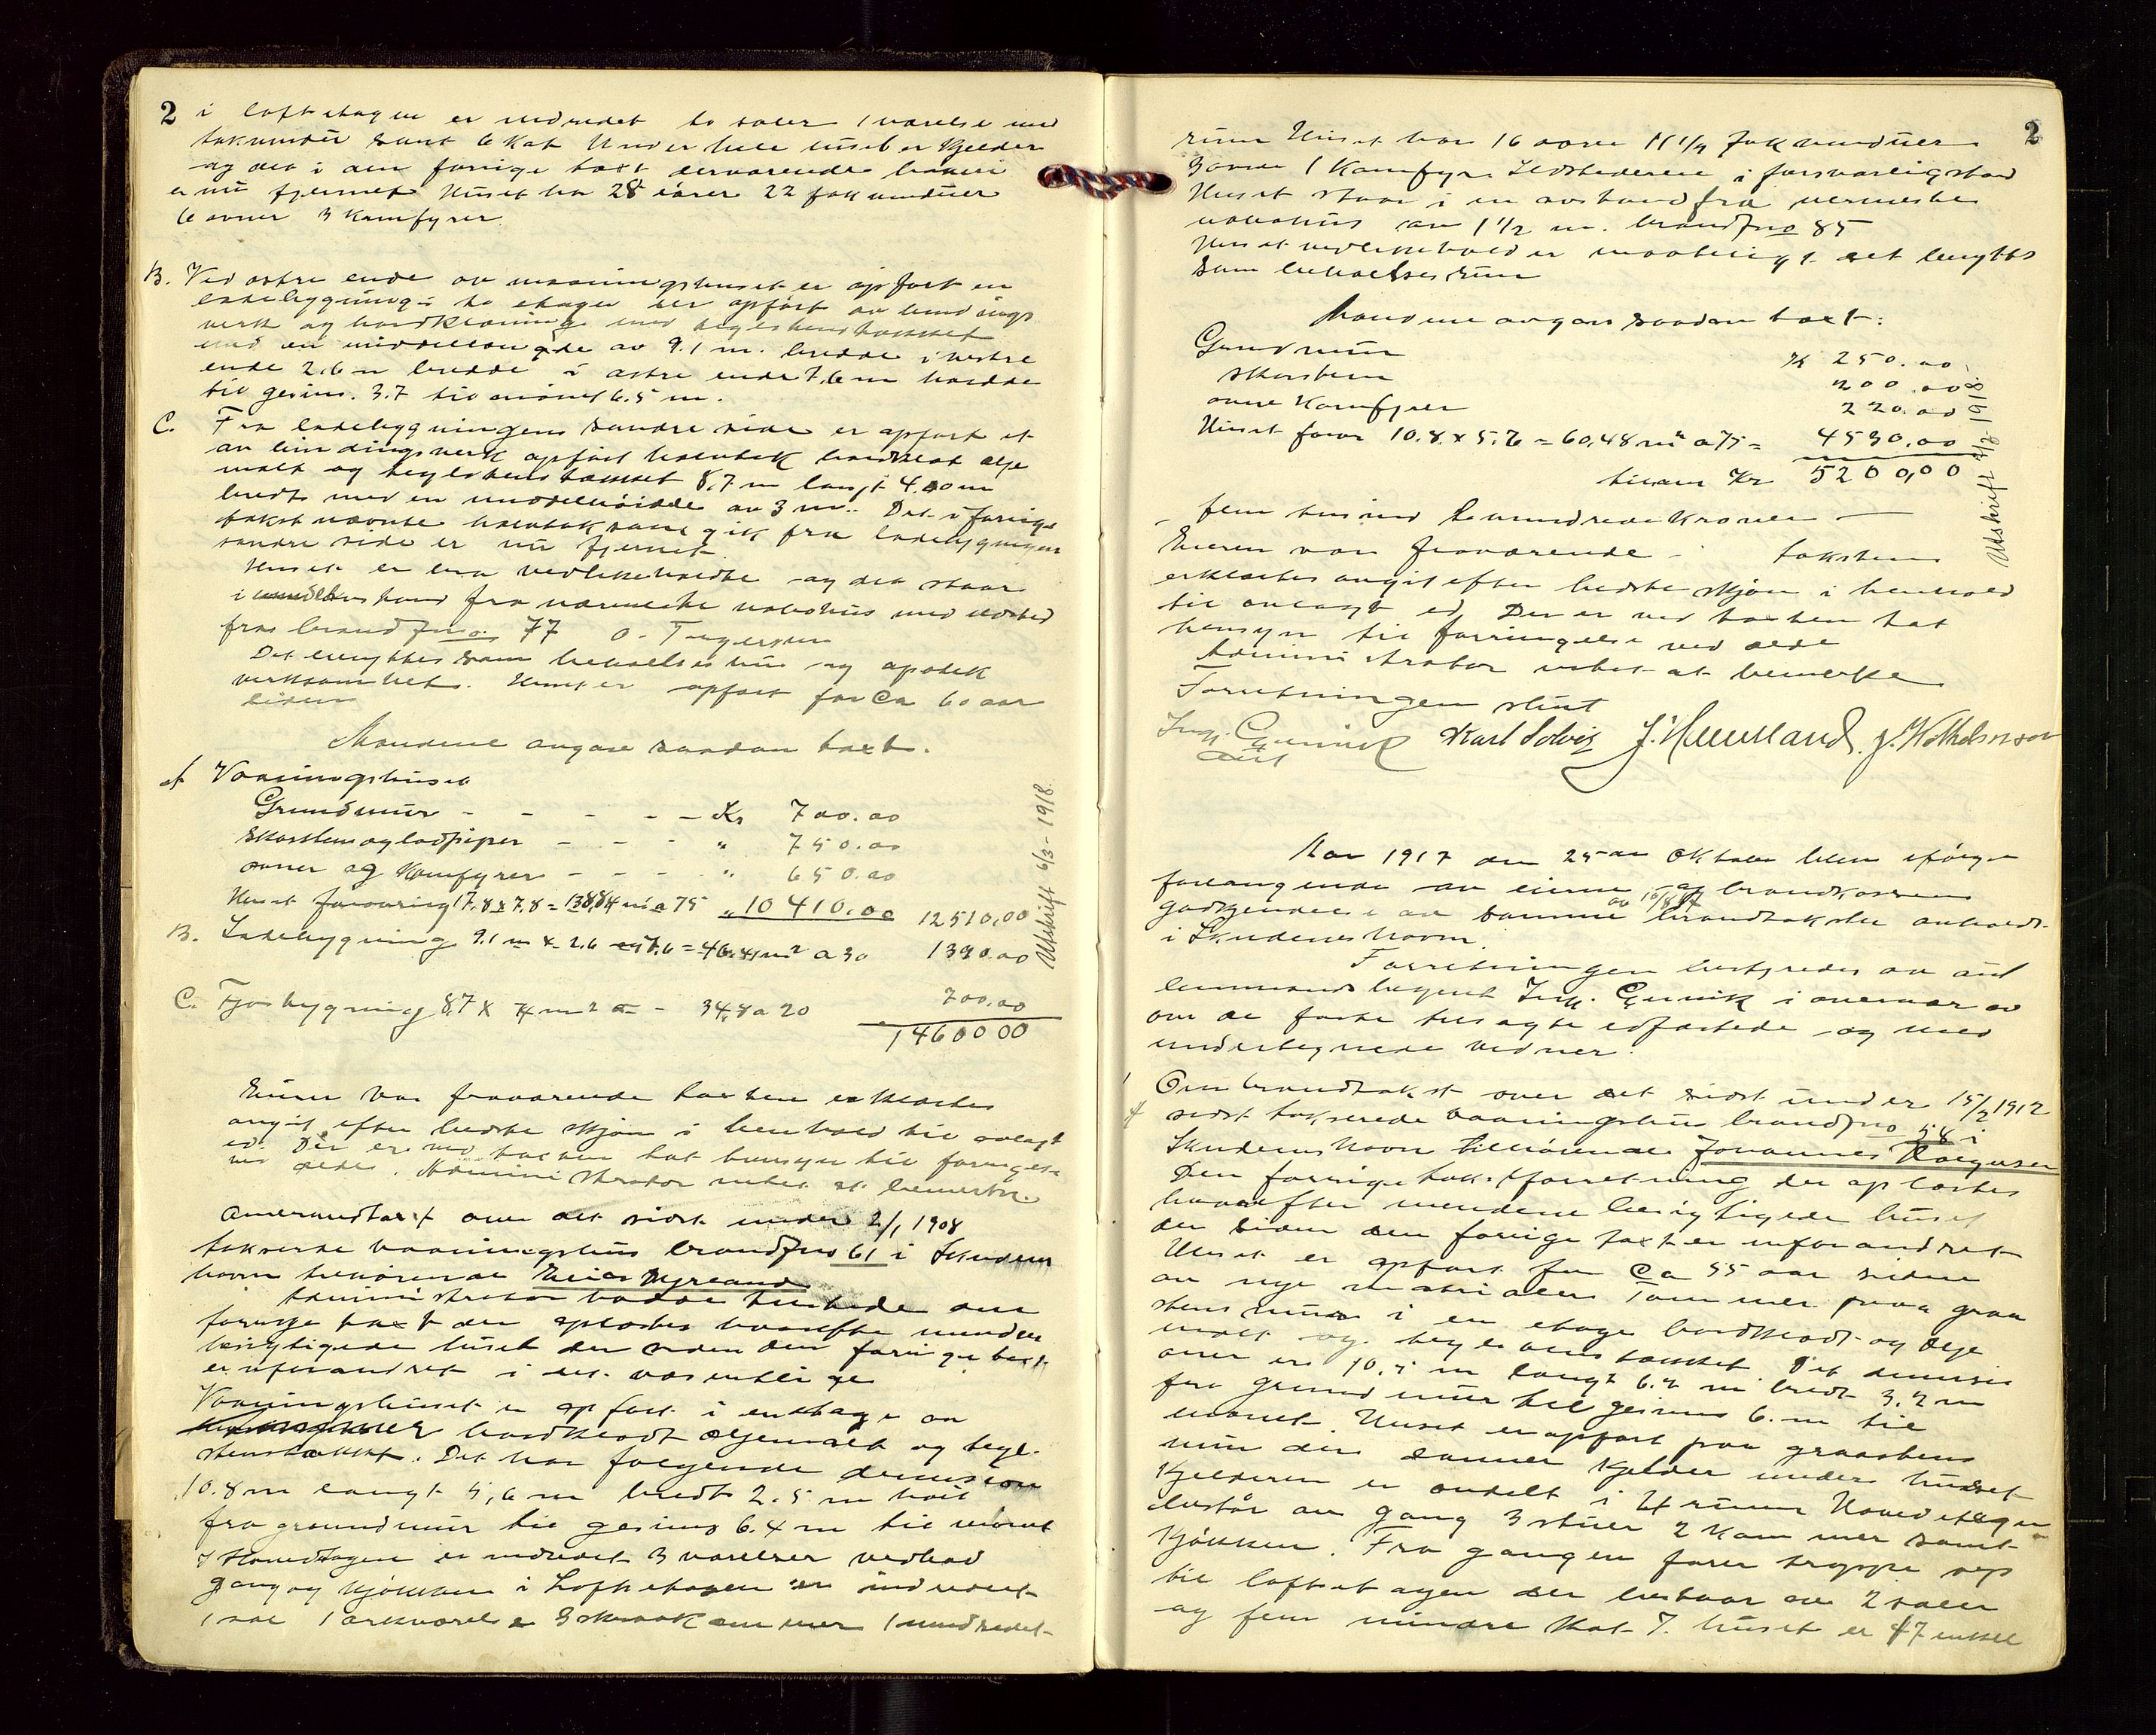 2
i loftetagen er indredet to saler 1 værelse med
takvindu samt 6 kot Under hele huset er kjelder
og det i den forrige takst derværende bakeri
er nu fjernet Huset har 28 dører 22 fak vinduer
6 ovner 3 komfyrer
B. Ved østre ende av vaaningshuset er opført en
ladebygning i to etager der opført av bindings
verk og bordklædning med teglstenstækket
med en middellængde av 9.1 m. bredde i vestre
ende 2,6 m bredde i østre ende 7,6 m høide
til gesims. 3.7 til mønet 6.5 m.
C. Fra ladebygningens søndre side er opført et
av bindingsverk opført halvtak bordklædt olje
malt og teglstenstækket 8,7 m langt 4.00 m
bredt med en middelhøide av 3 m. Det i forrige
takst nævnte halvtak som gik fra ladebygningens
søndre side er nu fjernet
Huset er bra vedlikeholdte og det staar
i avstand fra nærmeste nabohus med ildsted
fra brandfno. 77 O. Tegersen
Det benyttes som beboelseshus og apotek
verksomhet. Huset er opført for Ca 60 aar
siden
Mændene avgav saadan takst.
A Vaaningshuset
Grundmur - - - - - Kr 700.00
Skorsten og lodpiper - - - " 750.00
ovner og Komfyrer - - - - " 650.00
Huset forøvrig 17,8 x 7,8 = 138,84 m² a 75 " 10410.00 12510,00
B. Ladebygning 9.1 m x 2.6 og 7.6 = 46.41 m² a 30 1390.00
C. Fjøsbygning 8.7 x 4 m² = - 34,8 a 20 700.00
14600 00
Utskrift 6/3-1918.
Eieren var fraværende taksten erklærtes
avgit efter bedste skjøn i henhold til avlagt
ed. Der er ved taksten tat hensyn til foringelse
ved ælde. Administrator intet at bemerke.
Ombrandtakst over det sidst under 2/1 1908
takserte vaaningshus brandfno 61 i Skudenes
havn tilhørende Myreland
Administrator hadde tilstede den
forrige takst der oplæstes hvorefter mændene
besigtigede huset der siden den forrige takst
er uforandret i det væsentlige
Vaaningshuset er opført i en etage av
bordklædt oljemalt og tegl-
stenstækket. Det har følgende dimension
10.8 m langt 5,6 m bredt 2.5 m høit
fra grundmur til gesims 6.4 m til mønet
I Hovedetagen er indredet 3 værelser vedbod
gang og kjøkken i Loftsetagen er indredet
1 sal 1 arkværelse 3 skraakammer 1 uindredet
2
rum Huset har 16 dører 11 1/4 fak vinduer
3 ovner 1 Komfyr. Ildstederne i forsvarlig stand
Huset staar i en avstand fra nærmeste
nabohus av 1 1/2 m. brandfno 85
Huset vedlikehold er maateligt det benyttes
som beboelsesrum
Mændene avgav saadan takst:
Grundmur Kr 250.00
skorsten 200.00
ovne Komfyrer 220.00
Huset forøv 10.8 x 5.6 = 60,48 m² a 75 = 4530,00
tilsam Kr 5200,00
Utskrift 7/2-1918
- fem tusind to hundrede Kroner -
Eieren var fraværende - taksten
erklærtes avgit efter bedste skjøn i henhold
til avlagt ed. Der er ved taksten tat
hensyn til forringelse ved ælde
Administrator intet at bemerke
Forretningen slut
Gunnik Karl Solvig J. Hemmland. J. Wilhelmsen
Aar 1917 den 25de oktober blev ifølge
forlangende av eieren og brandkassens
godkjendelse av samme av 10/8 17 brandtakster avholdt
i Skudeneshavn.
Forretningen bestyredes av aut
lensmandsbetjent Gunnik i overvær av
om de faste tilsagte edfæstede og med
undertegnede vidner.
1 Om brandtakst over det sidst under 15/2 1912
A sidst takserede vaaningshus brandfno 58 i
Skudeneshavn tilhørende Johannes
Den forrige takstforretning der oplæstes
hvorefter mændene besigtigede huset
der siden den forrige takst er uforandret
Huset er opført for Ca 55 aar siden
av nye materialer tømmer paa graa
stens mur i en etage bordklædt og olje
malt og teglstenstækket. Det dimensi
oner er 10.5 m langt 6.2 m bredt 3.2 m
fra grundmur til gesims 6. m til
mønet. Huset er opført paa graastens
mur der danner kjelder under huset
Kjelderen er avdelt i 4 rum Hovedetagen
består av gang 3 stuer 2 kammer samt
kjøkken. Fra gangen fører trappe op
til loftsetagen der bestaar av 2 saler
og fem mindre Kot I huset er 17 enkel